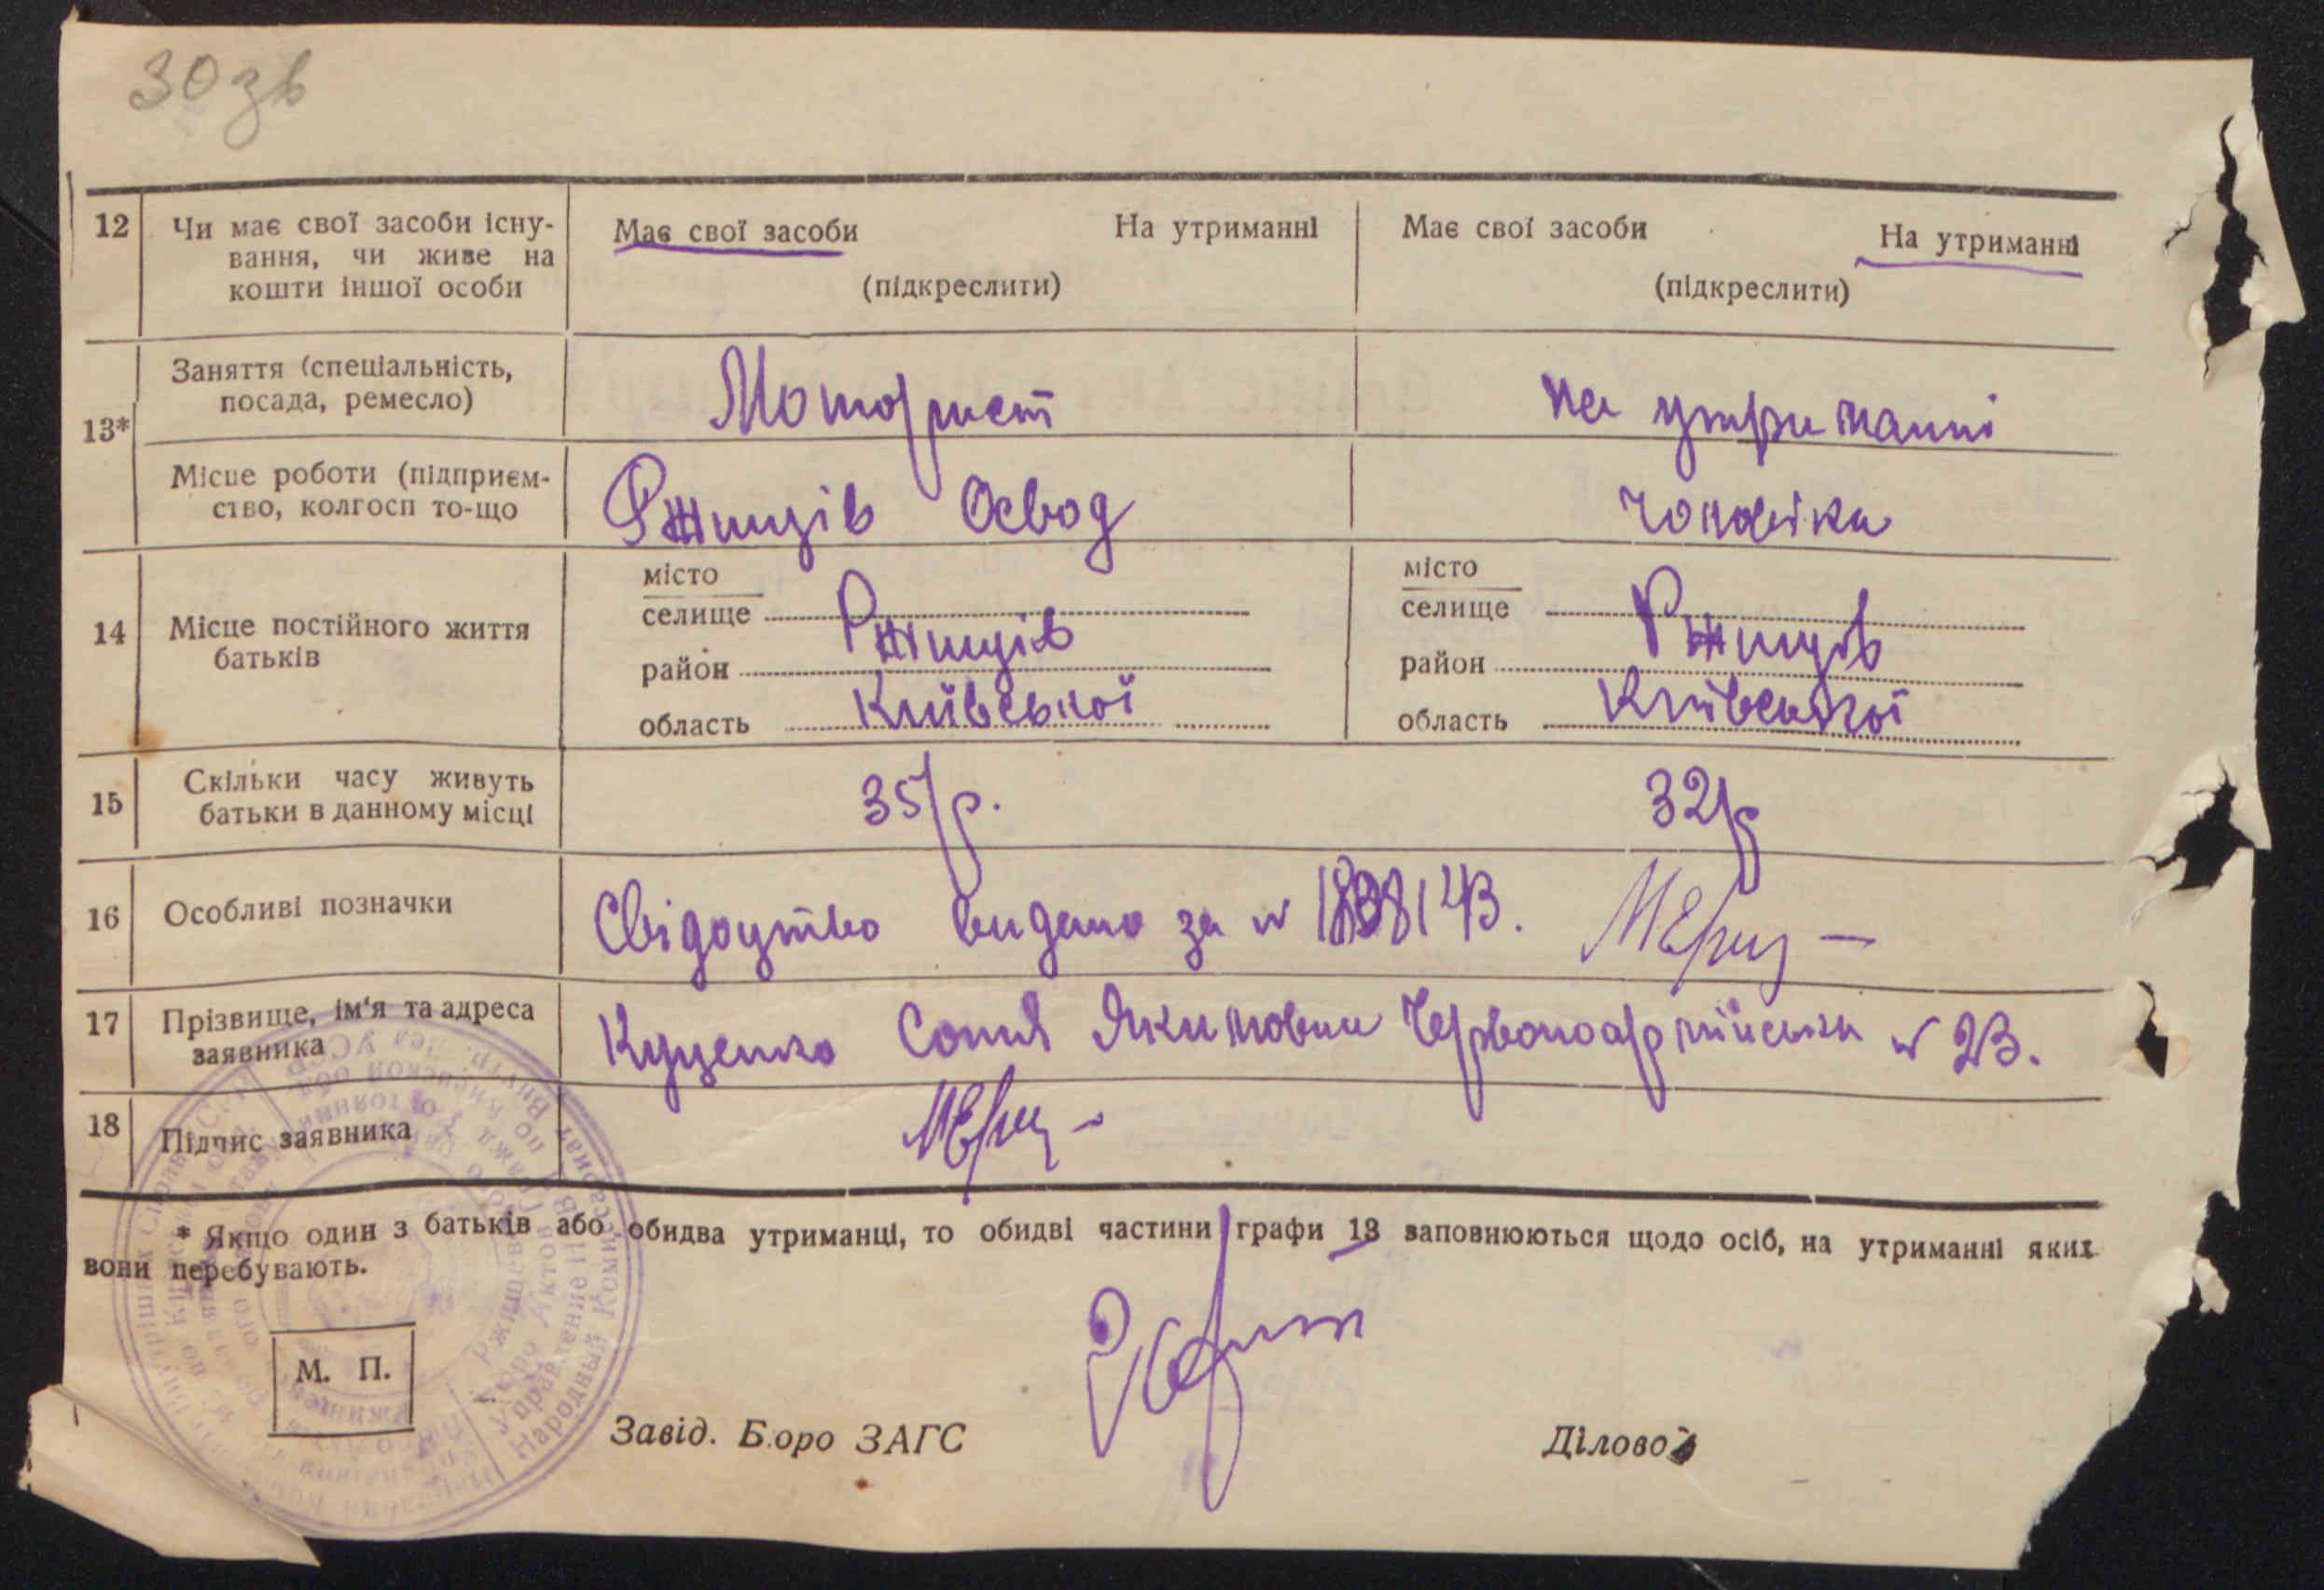 30 зв
12 Чи має свої засоби існу-
вання, чи живе на
кошти іншої особи
Має свої засоби На утриманні
(підкреслити)
Має свої засоби На утриманні
(підкреслити)
13*
Заняття (спеціальність,
посада, ремесло)
Моторист
на утриманні
Місце роботи (підприєм-
ство, колгосп то-що
Ржищів Освод
чоловіка
14 Місце постійного життя
батьків
місто
селище
Ржищів
район
область Київської
місто
селище
Ржищів
район
область Київської
15 Скільки часу живуть
батьки в данному місці
35/р.
32/р
16 Особливі позначки
Свідоцтво видано за №
17 Прізвище, ім'я та адреса
заявника
Куценко Соня Якимовна Червоноармійська № 23.
18 Підпис заявника
* Якщо один з батьків або обидва утриманці, то обидві частини графи 13 заповнюються щодо осіб, на утриманні яких
вони перебувають.
М. П.
Завід. Бюро ЗАГС
Діловод